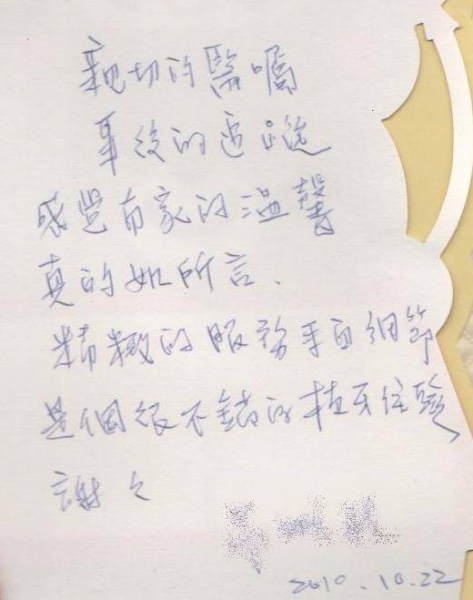 親切的醫囑
事後的追蹤
感覺有家的溫馨
真的如所言.
精緻的服務手面細節
是個很不錯的植牙經驗
謝々
2010.10.22